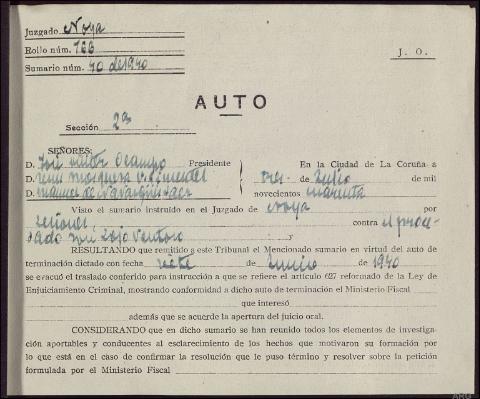 Juzgado Noya
Rollo núm. 766
Sumario núm. 40 de 1940
J. O.
AUTO
Sección 2ª
SEÑORES:
D. José Ocampo Presidente
D. Mosquera
D. Manuel de
En la Ciudad de La Coruña a
tres de Julio de mil
novecientos cuarenta
Visto el sumario instruído en el Juzgado de Noya por
lesiones contra el proce-
sado José Rojo
y
RESULTANDO que remitido a este Tribunal el Mencionado sumario en virtud del auto de
terminación dictado con fecha siete de Junio de 1940
se evacuó el traslado conferido para instrucción a que se refiere el artículo 627 reformado de la Ley de
Enjuiciamiento Criminal, mostrando conformidad a dicho auto de terminación el Ministerio Fiscal
que interesó
además que se acuerde la apertura del juicio oral.
CONSIDERANDO que en dicho sumario se han reunido todos los elementos de investiga-
ción aportables y conducentes al esclarecimiento de los hechos que motivaron su formación por
lo que está en el caso de confirmar la resolución que le puso término y resolver sobre la petición
formulada por el Ministerio Fiscal
ARG